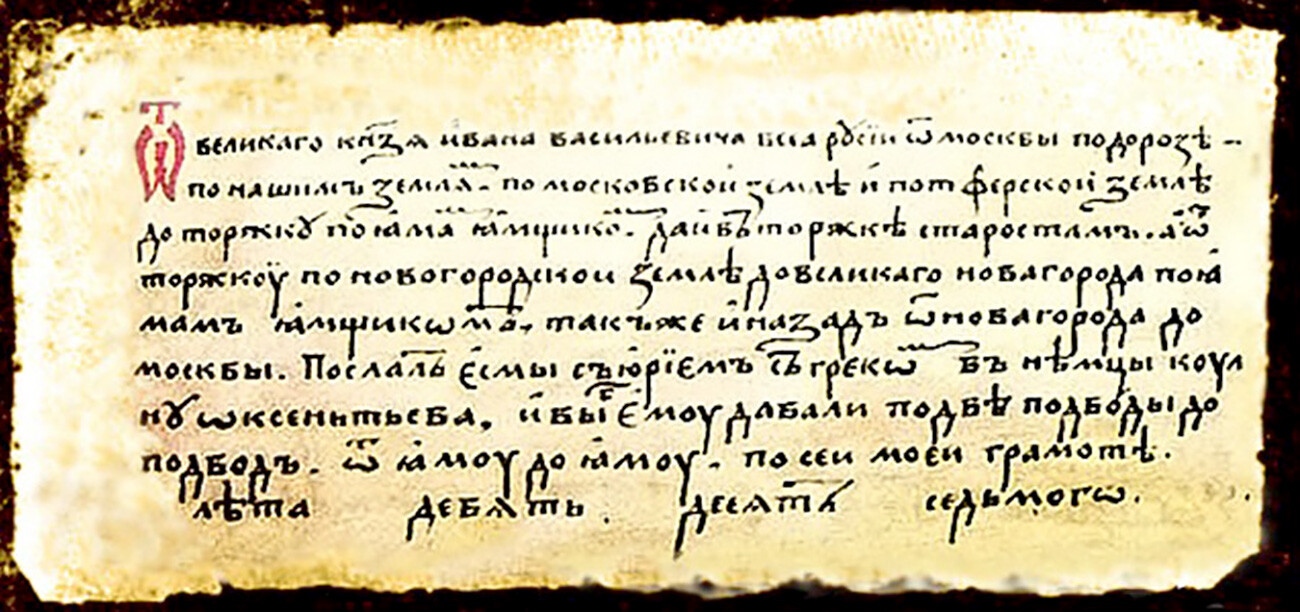 Ѿ великаго кн҃зя ивана васильевича всеа рꙋсїи ѿ москвы подорозѣ –
по нашимъ землѧм. по московской землѣ и по тферской землѣ
до торжкꙋ по ꙗмам ꙗмщиком. да и въ торжкѣ старостамъ. а ѿ
торжкоу по новогородской землѣ до великаго новагорода по ꙗ
мамъ ꙗмщикѡмъ. такъже и назадъ ѿ новагорода до
москвы. Послалъ есмы съ юрїемъ съ грекѡм въ нѣмцы коул
нꙋ ѡксентьева. и вы б емоу давали по двѣ подводы до
подводъ. ѿ ꙗмоу до ꙗмоу. по сей моей грамотѣ.
лѣта девѧть. десят седьмогѡ.